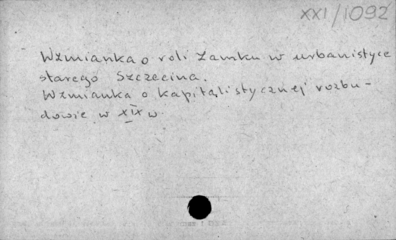 XXI/1092
Wzmianka o roli Zamku w urbanistyce
starego Szczecina.
Wzmianka o kapitalistycznej rozbu-
dowie w XIX w